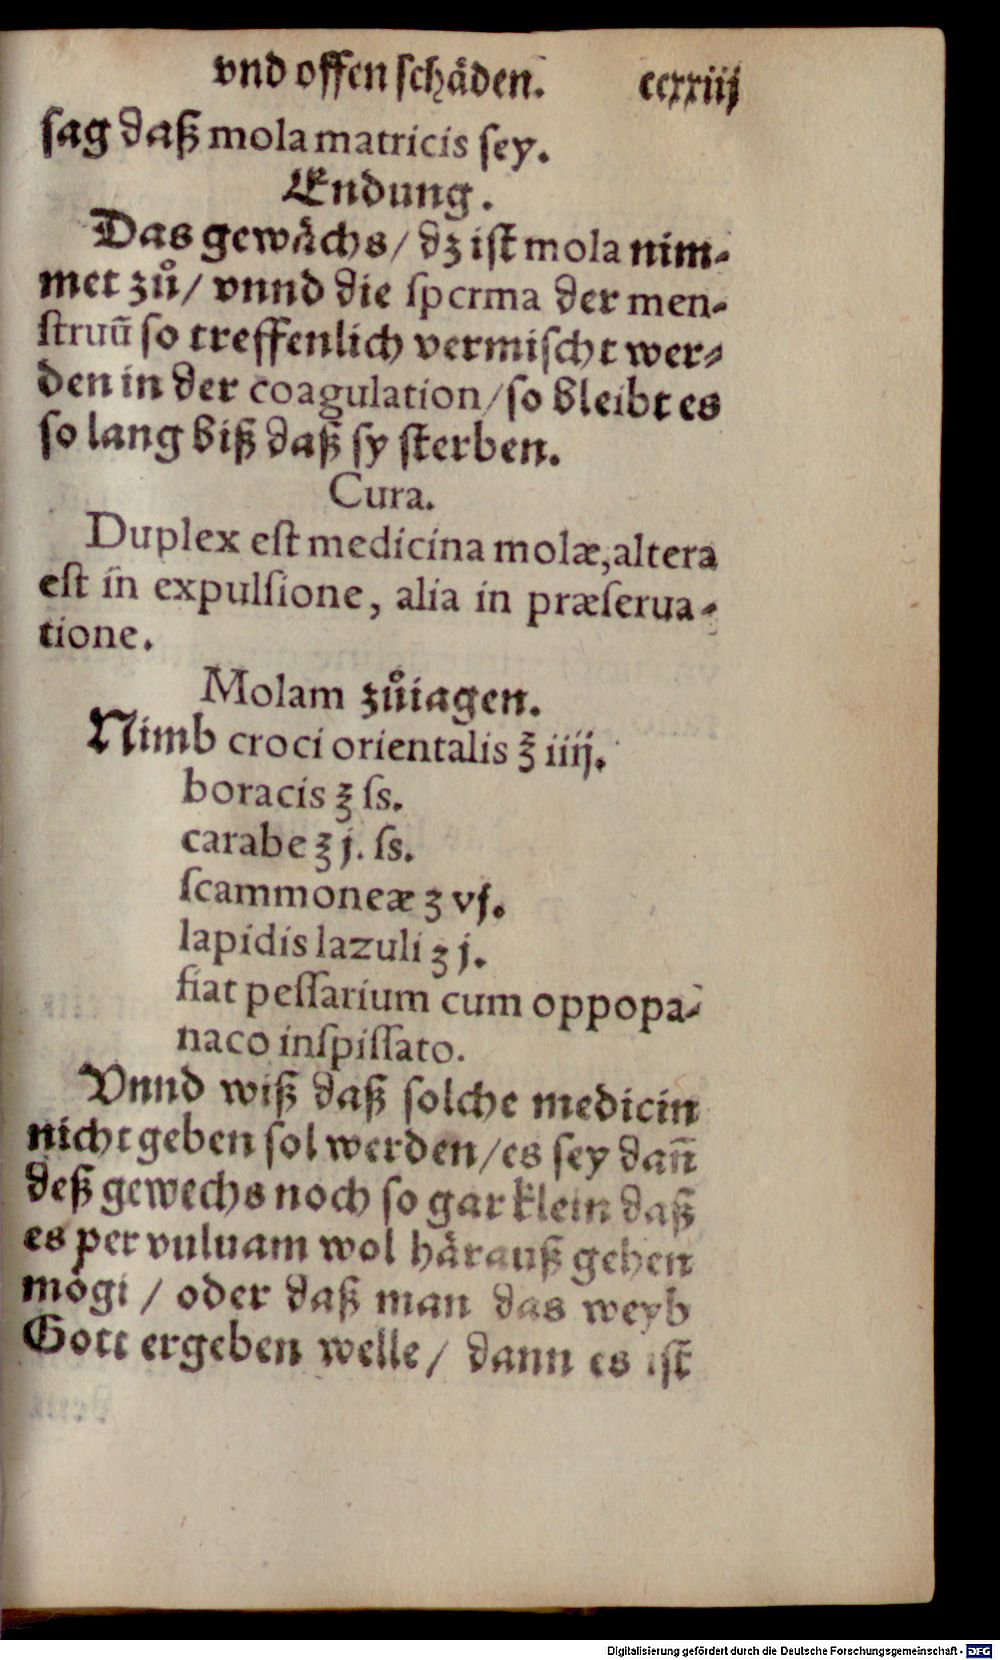 vnd offen schåden. ccxxiij
sag daß mola matricis sey.
Endung.
Das gewåchs/ dz ist mola nim-
met zů/ vnnd die sperma der men-
struũ so treffenlich vermischt wer-
den in der coagulation/ so bleibt es
so lang biß daß sy sterben.
Cura.
Duplex est medicina molæ, altera
est in expulsione, alia in præserua-
tione.
Molam zůiagen.
Nimb croci orientalis ℥ iiij.
boracis ℥ ss.
carabe ℥ j. ss.
scammoneæ ʒ vj.
lapidis lazuli ʒ j.
fiat pessarium cum oppopa-
naco inspissato.
Vnnd wiß daß solche medicin
nicht geben sol werden/ es sey dañ
deß gewechs noch so gar klein daß
es per vuluam wol hårauß gehen
mógi / oder daß man das weyb
Gott ergeben welle/ dann es ist
Digitalisierung gefördert durch die Deutsche Forschungsgemeinschaft - DFG